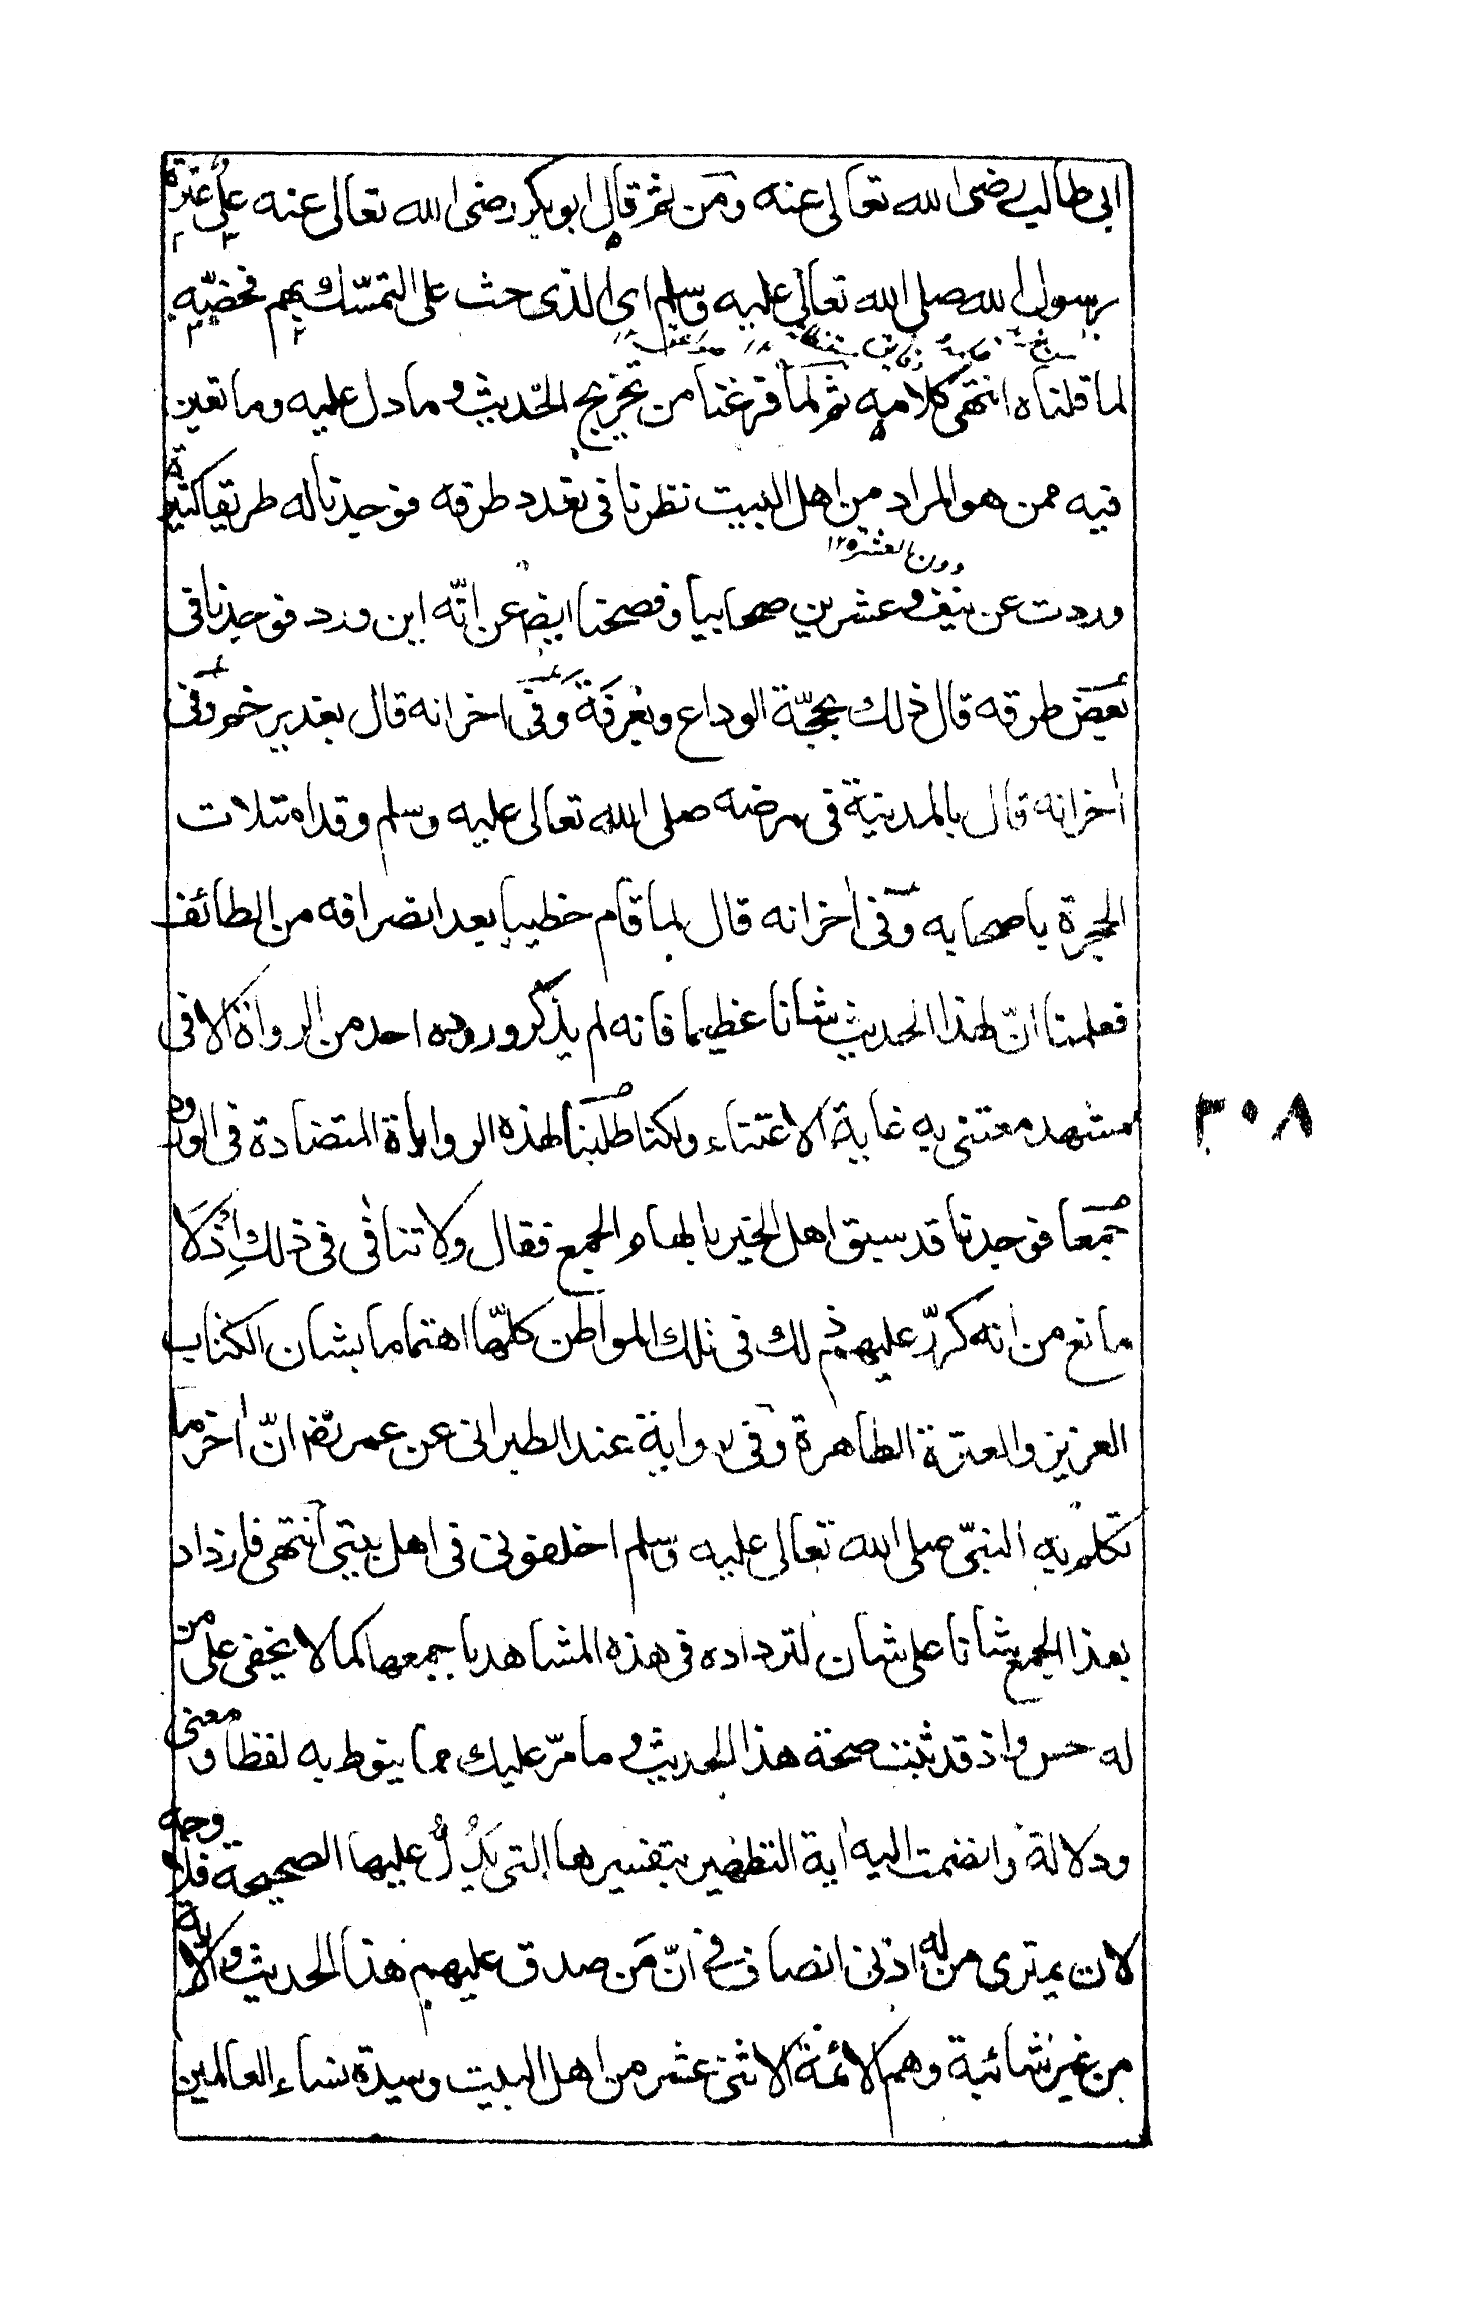 ابى طالب رضى الله تعالى عنه ومن ثم قال ابو بكر رضى الله تعالى عنه على عترة
رسول الله صلى الله تعالى عليه وسلم اى الذى حث على التمسّك بهم فخصّه
لما قلناه انتهى كلامه ثم لما فرغنا من تخريج الحديث وما دل عليه وما تعين
فيه ممن هو المراد من اهل البيت نظرنا فى تعدد طرقه فوجدنا له طريقا كثيرة
دون العشرة ١٢
وردت عن نيف وعشرين صحابيا وفصحنا ايضا عن انّه اين ورد فوجدنا فى
بعض طرقه قال ذلك بحجّة الوداع وبعرفة وفى اخر انه قال بغدير خم وفى
اخر انه قال بالمدينة فى مرضه صلى الله تعالى عليه وسلم وقد امتلات
الحجرة باصحابه وفى اخر انه قال لما قام خطيبا بعد انصرافه من الطائف
فعلمنا انّ لهذا الحديث شانا عظيما فانه لم يذكر وروده احد من الرواة الا فى
مشهد معتنى به غاية الاعتناء ولكنا طلبنا لهذه الرواياة المتضادة فى الورود
جمعا فوجدنا قد سبق اهل الخير بالهام الجمع فقال ولا تنافى فى ذلك اذ لا
مانع من انه كرّر عليهم ذلك فى تلك المواطن كلّها اهتماما بشان الكتاب
العزيز والعترة الطاهرة وفى رواية عند الطبرانى عن عمر رض انّ اخر ما
تكلم به النبىّ صلى الله تعالى عليه وسلم اخلفونى فى اهل بيتى انتهى فازداد
بهذا الجمع شانا على شان لترداده فى هذه المشاهد باجمعها كما لا يخفى على من
له حس واذ قد ثبت صحة هذا الحديث وما مرّ عليك مما ينوط به لفظا ومعنى
ودلالة وانضمت اليه اية التطهير بتفسيرها التى يَدُلُّ عليها الصحيحة فلا وجه
لان يمترى من له اذنى انصاف فى انّ مَن صدق عليهم هذا الحديث والاية
من غير شائبة وهم الائمة الاثنى عشر من اهل البيت وسيدة نساء العالمين
٣٠٨